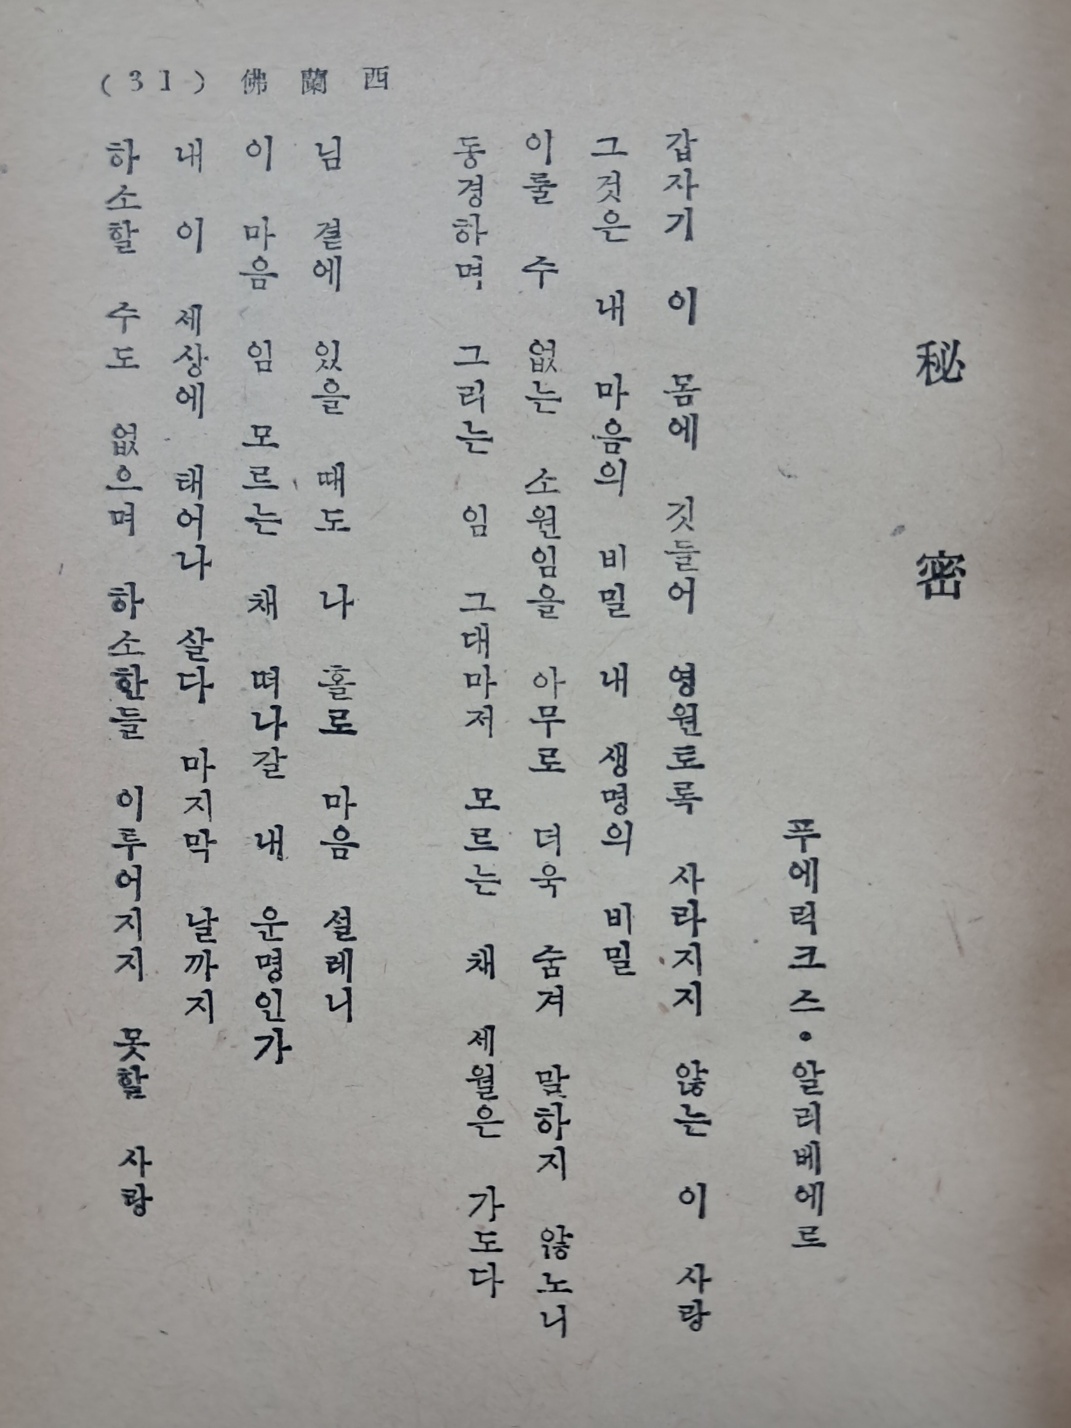 秘密
푸에릭크스•알리베에르
갑자기 이 몸에 깃들어 영원토록 사라지지 않는 이 사랑
그것은 내 마음의 비밀 내 생명의 비밀
이룰 수 없는 소원임을 아무로 더욱 숨겨 말하지 않노니
동경하며 그리는 임 그대마저 모르는 채 세월은 가도다
님 곁에 있을 때도 나 홀로 마음 설레니
이 마음 임 모르는 채 떠나갈 내 운명인가
내 이 세상에 태어나 살다 마지막 날까지
하소할 수도 없으며 하소한들 이루어지지 못할 사랑
(31) 佛蘭西